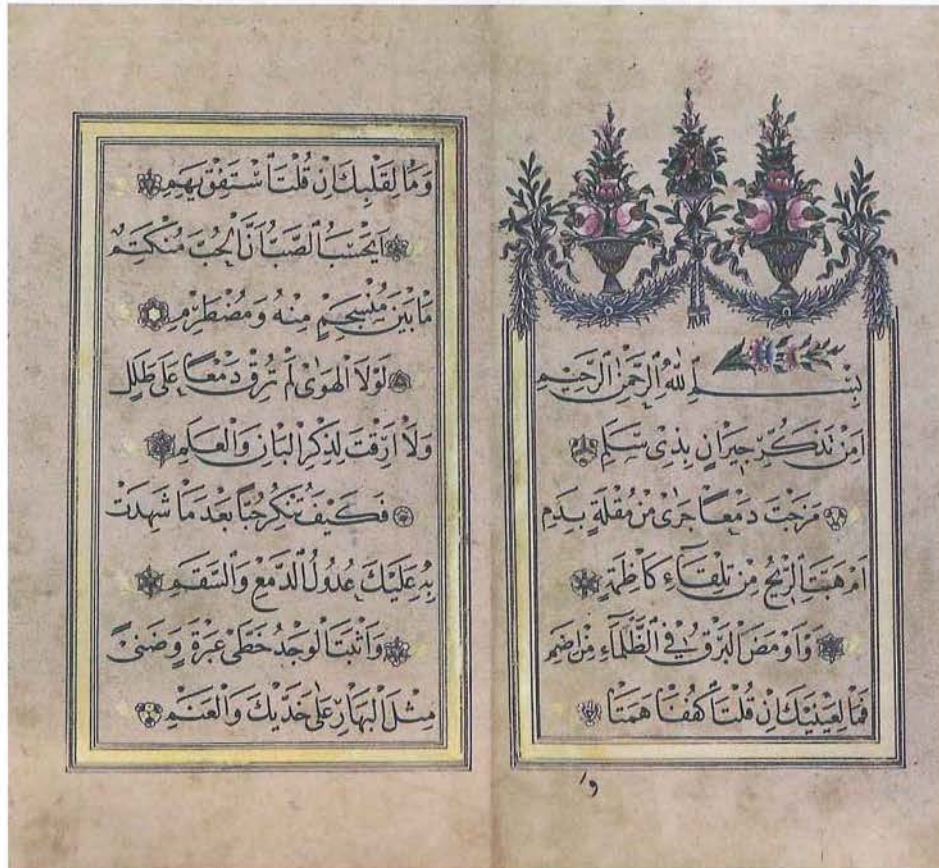 بِسْمِ ٱللّٰهِ ٱلرَّحْمٰنِ ٱلرَّحِيمِ
اَمِنْ تَذَكُّرِ جِيرَانٍ بِذِى سَلَمِ
مَزَجْتَ دَمْعًا جَرٰى مِنْ مُقْلَةٍ بِدَمِ
اَمْ هَبَّتِ ٱلرِّيحُ مِنْ تِلْقَآءِ كَاظِمَةٍ
وَاَوْمَضَ ٱلْبَرْقُ فِي ٱلظَّلْمَآءِ مِنْ اِضَمِ
فَمَا لِعَيْنَيْكَ اِنْ قُلْتَ ٱكْفُفَا هَمَتَا
و
وَمَا لِقَلْبِكَ اِنْ قُلْتَ ٱسْتَفِقْ يَهِمِ
اَيَحْسَبُ ٱلصَّبُّ اَنَّ ٱلْحُبَّ مُنْكَتِمٌ
مَا بَيْنَ مُنْسَجِمٍ مِنْهُ وَمُضْطَرِمِ
لَوْلَا ٱلْهَوٰى لَمْ تُرِقْ دَمْعًا عَلٰى طَلَلٍ
وَلَا اَرِقْتَ لِذِكْرِ ٱلْبَانِ وَٱلْعَلَمِ
فَكَيْفَ تُنْكِرُ حُبًّا بَعْدَ مَا شَهِدَتْ
بِهِ عَلَيْكَ عُدُولُ ٱلدَّمْعِ وَٱلسَّقَمِ
وَاَثْبَتَ ٱلْوَجْدُ خَطَّىْ عَبْرَةٍ وَضَنًى
مِثْلَ ٱلْبَهَارِ عَلٰى خَدَّيْكَ وَٱلْعَنَمِ